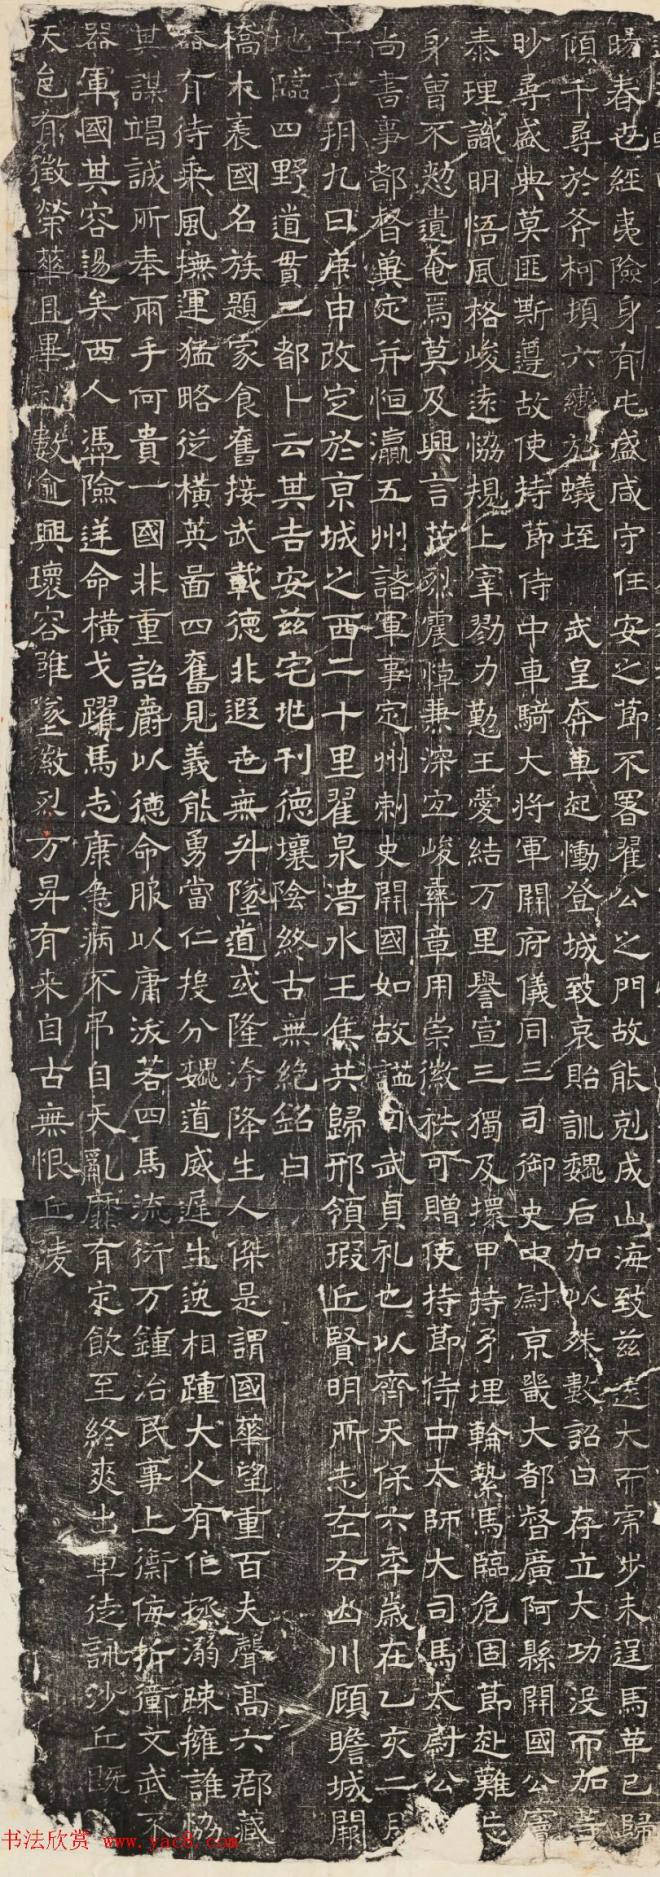 暘春也經夷險身有屯盛咸守任安之節不署翟公之門故能剋成山海致茲遠大而常步未逞馬革已歸
傾千尋於斧柯頓六轡於蟻垤 武皇奔車起慟登城致哀貽訓魏后加以殊數詔曰存立大功没而加等
眇尋盛典莫匪斯遵故使持節侍中車騎大將軍開府儀同三司御史中尉京畿大都督廣阿縣開國公
泰理識明悟風格峻遠恊規上宰勠力勤王愛結万里譽宣三獨及擐甲持矛埋輪縶馬臨危固節赴難忘
身曾不慭遺奄焉莫及興言茂烈震悼兼深宜峻彝章用崇徽秩可贈使持節侍中太師大司馬太尉公
尚書事都督冀定并恒瀛五州諸軍事定州刺史開國如故謚曰武貞礼也以齊天保六年歲在乙亥二月
壬子朔九日庚申改定於京城之西二十里翟泉湆水王侯共歸邢領瑕丘賢明所志左右山川顧瞻城闕
地臨四野道貫二都卜云其吉安茲宅地刊德壤陰終古無絶銘曰
橋木表國名族題家食舊接武載德非遐世無升墜道或隆洿降生人傑是謂國華望重百夫聲高六郡藏
器有待乘風撫運猛略從横英啚四奮見義能勇當仁投分魏道威遲生逸相踵大人有作拯溺踈擁誰恊
其謀竭誠所奉兩手何貴一國非重詔爵以德命服以庸浟若四馬流衍万鍾治民事上衛侮折衝文武不
器軍國其容逷矣西人馮險逆命横戈躍馬志康急病不弔自天亂靡有定飲至終爽出車徒詠沙丘既
天邑有徵榮華且畢 數逾興壞容雖墜徽烈方昇有来自古無恨丘淩
书法欣赏 www.yac8.com